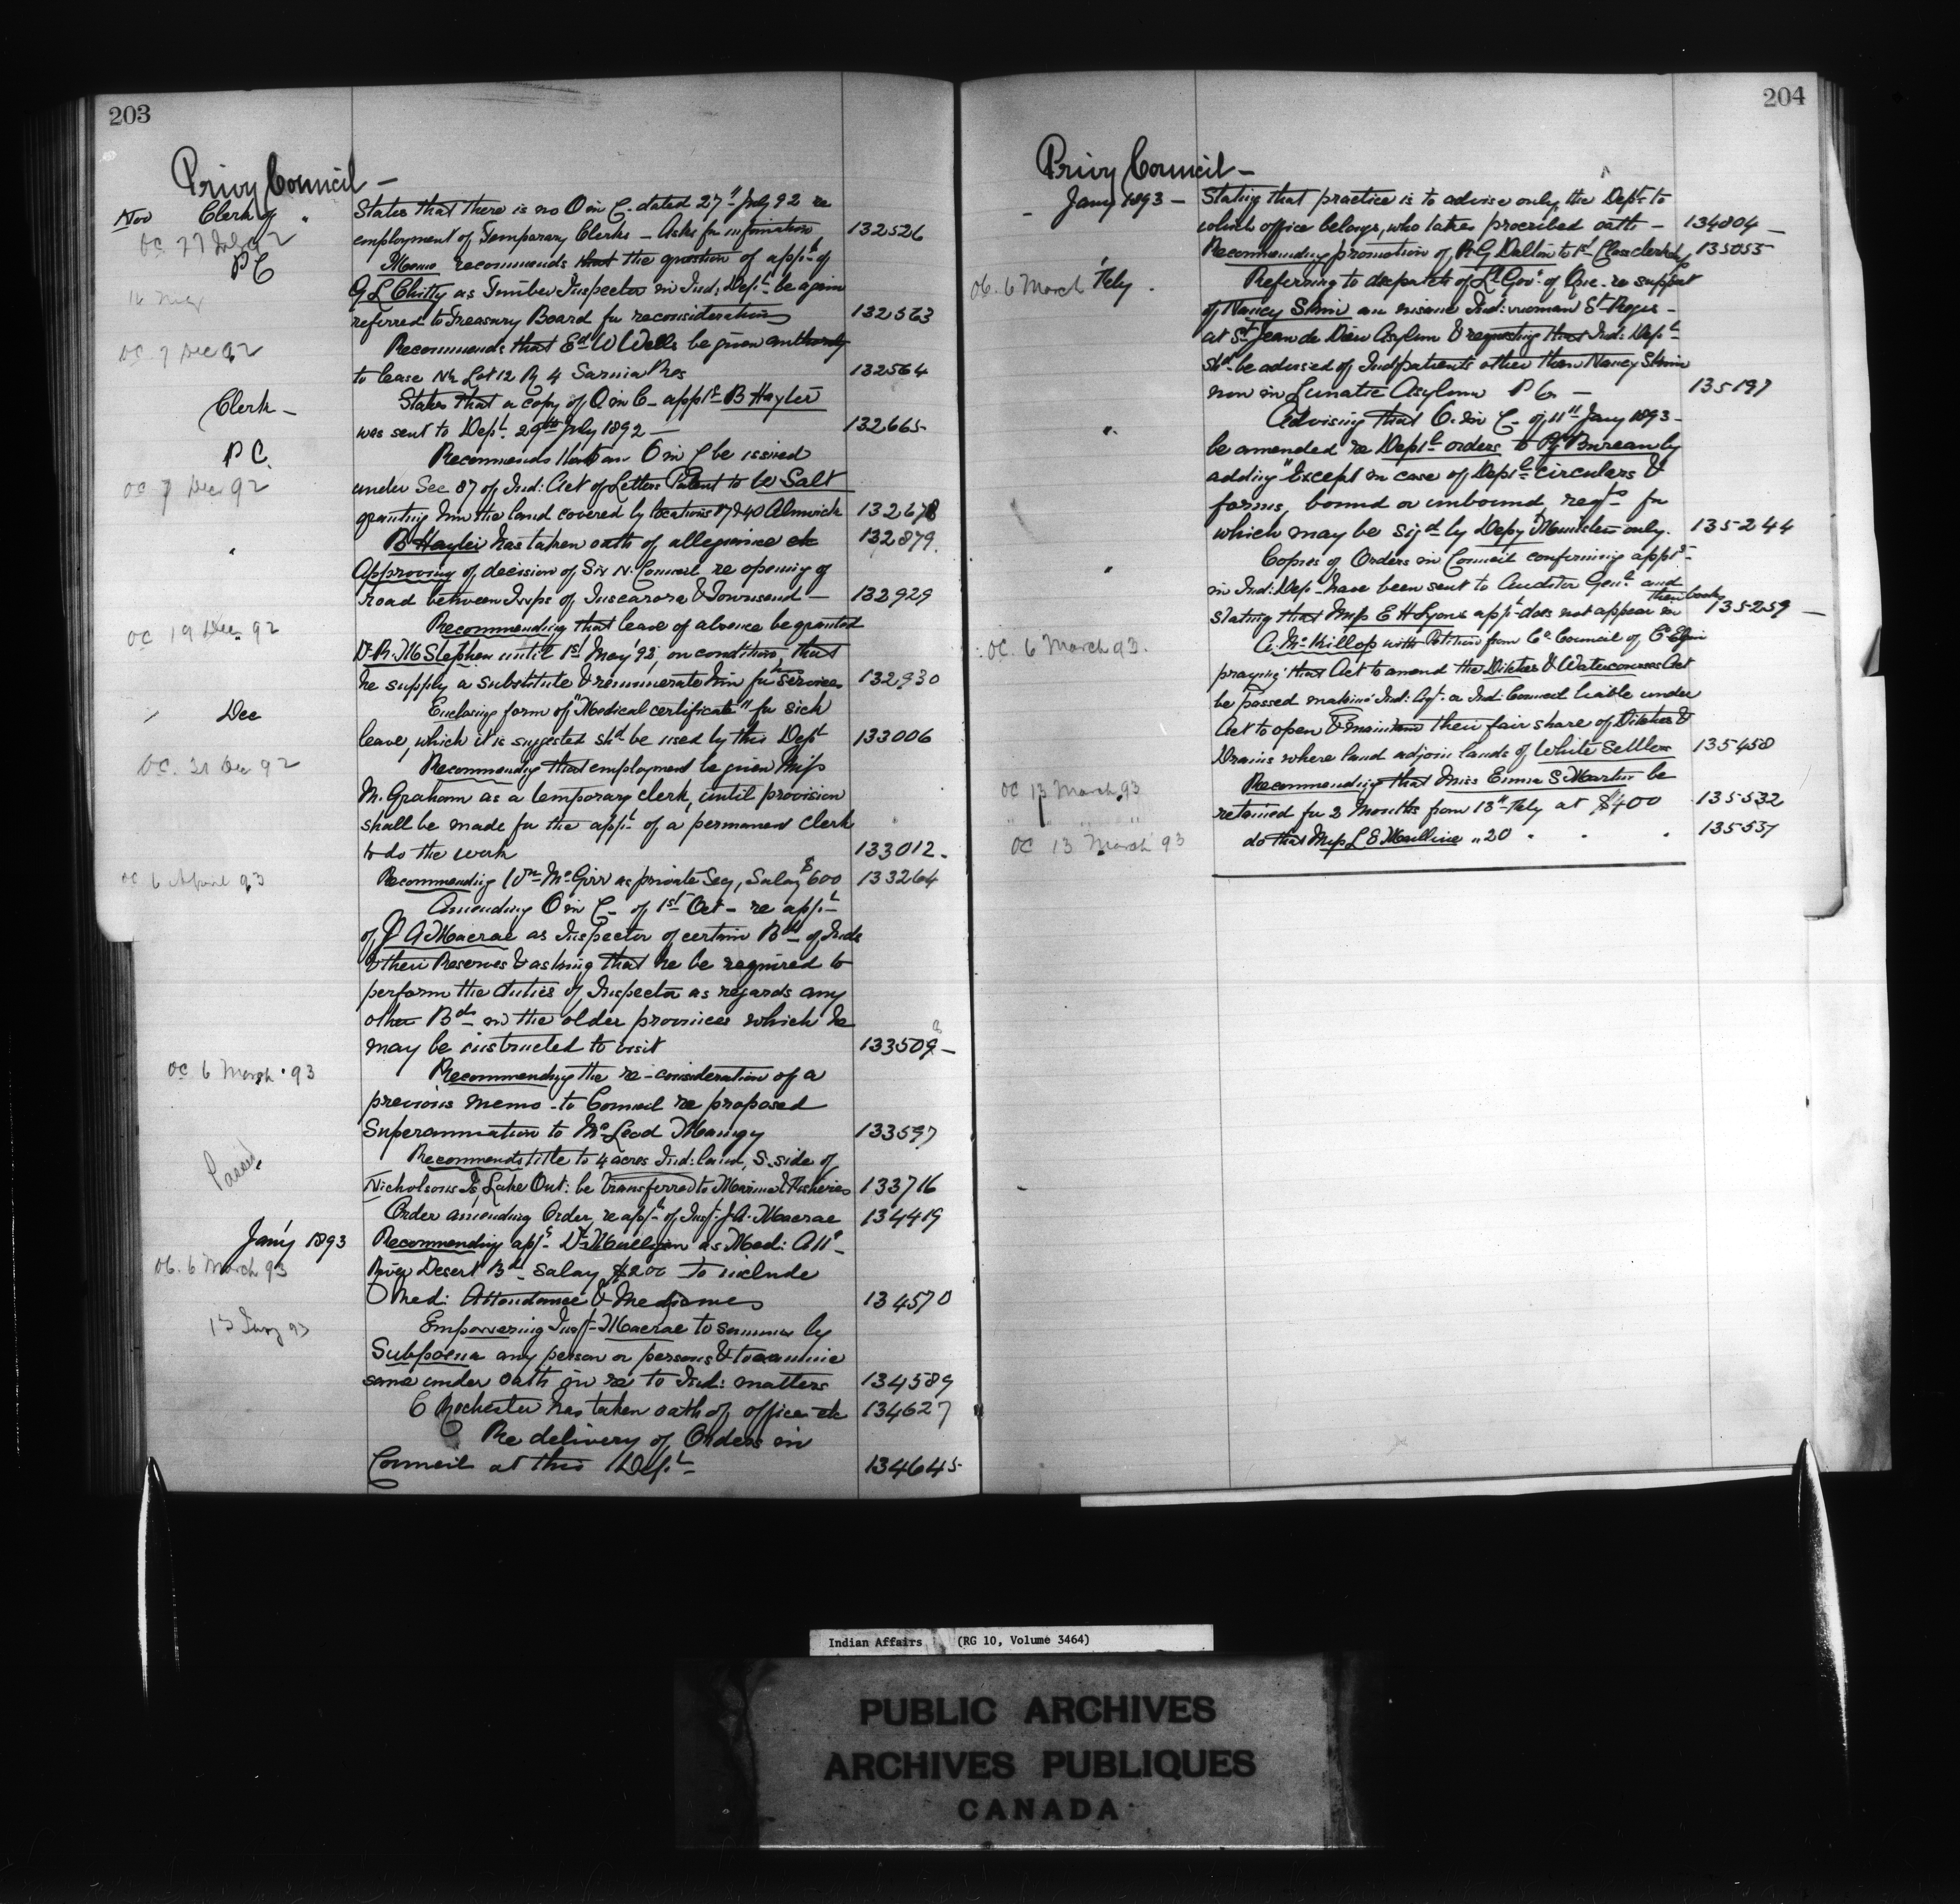 203
Privy Council —
Nov Clerk of "
OC 27 July 92
States that there is no O in C. dated 27" July 92 re
employment of Temporary Clerks — Asks for information 132526
PC
Memo recommends that the question of appt of
16 Nov
G L Chitty as Timber Inspector in Ind: Dept. be again
referred to Treasury Board for reconsideration 132563
OC 7 Dec 92
Recommends that Ed W Wells be given authority
to lease N½ Lot 12 R 4 Sarnia Res 132564
Clerk —
States that a copy of O in C — appt B Hayter
was sent to Dept. 29th July 1892 — 132665
P C.
Recommends that an O in C be issued
OC 7 Dec 92
under Sec 87 of Ind: Act of Letters Patent to W Salt
granting him the land covered by locations 87 & 40 Alnwick 132678
B Hayter has taken oath of allegiance etc 132879.
"
Approving of decision of Six N. Council re opening of
road between Twps of Tuscarora & Townsend — 132929
OC 19 Dec. 92
Recommending that leave of absence be granted
Dr. R. M Stephen until 1st May '93, on condition that
he supply a substitute & remunerate him for services 132930
Dec
Enclosing form of "Medical certificate" for sick
leave, which it is suggested shd be used by this Dept 133006
OC. 21 Dec 92
Recommending that employment be given Miss
M. Graham as a temporary clerk, until provision
shall be made for the appt of a permanent clerk
to do the work 133012.
OC 6 April 93
Recommending Wm McGirr as private Secy, Salary $600 133264
Amending O in C — of 1st Oct — re appt
of J A Macrae as Inspector of certain Bds of Inds
& their Reserves & asking that he be required to
perform the duties of Inspector as regards any
other Bds — in the older provinces which he
may be instructed to visit 133509 —
OC 6 March '93
Recommending the re-consideration of a
previous memo — to Council re proposed
Superannuation to McLeod Maingy 133597
Recommends title to 4 acres Ind: land, S. side of
Nicholsons Is, Lake Ont: be transferred to Marine & Fisheries 133716
Order amending Order re appt of Insp. J. A. Macrae 134419
Jany 1893
Recommending appt Dr Mulligan as Med: Att
OC. 6 March 93
River Desert Bd — Salary $200 to include
Med: Attendance & Medicines 134570
13 Jany 93
Empowering Insp — Macrae to summon by
Subpoena any person or persons & to examine
same under oath in re to Ind: matters 134589
C Rochester has taken oath of office etc 134627
Re delivery of Orders in
Council at this Dept — 134645
204
Privy Council —
— Jany 1893 —
Stating that practice is to advise only the Dept to
which office belongs, who takes prescribed oath — 134804 —
Recommending promotion of R G Dalton to 1st Class clerkship 135055
OC. 6 March Feby.
Referring to dispatch of Lt Govr of Que. re support
of Nancy Skin an insane Ind: woman St Regis —
at St Jean de Dieu Asylum & requesting that Ind: Dept
shd be advised of Ind patients other than Nancy Skin
now in Lunatic Asylum P Q — 135197
"
Advising that O. in C. of 11th Jany 1893 —
be amended re Deptl orders to Ptg Bureau by
adding "Except in case of Deptl circulars &
forms, bound or unbound, regrs for
which may be sigd by Depy Minister only. 135244
"
Copies of Orders in Council confirming appts
in Ind: Dept have been sent to Auditor Genl and
stating that Miss E H Lyons appt does not appear in their books 135259 —
OC. 6 March 93.
A. McKillop with Petition from Co Council of Co Elgin
praying that Act to amend the Ditches & Watercourses Act
be passed making Ind: Agt. or Ind: Council liable under
Act to open & maintain their fair share of Ditches &
Drains where land adjoin lands of White Settler 135458
OC 13 March 93
Recommending that Miss Emma S Martin be
retained for 2 Months from 13th Feby at $400 135532
OC 13 March 93
do that Miss L E " 20 " " " 135537
Indian Affairs (RG 10, Volume 3464)
PUBLIC ARCHIVES
ARCHIVES PUBLIQUES
CANADA